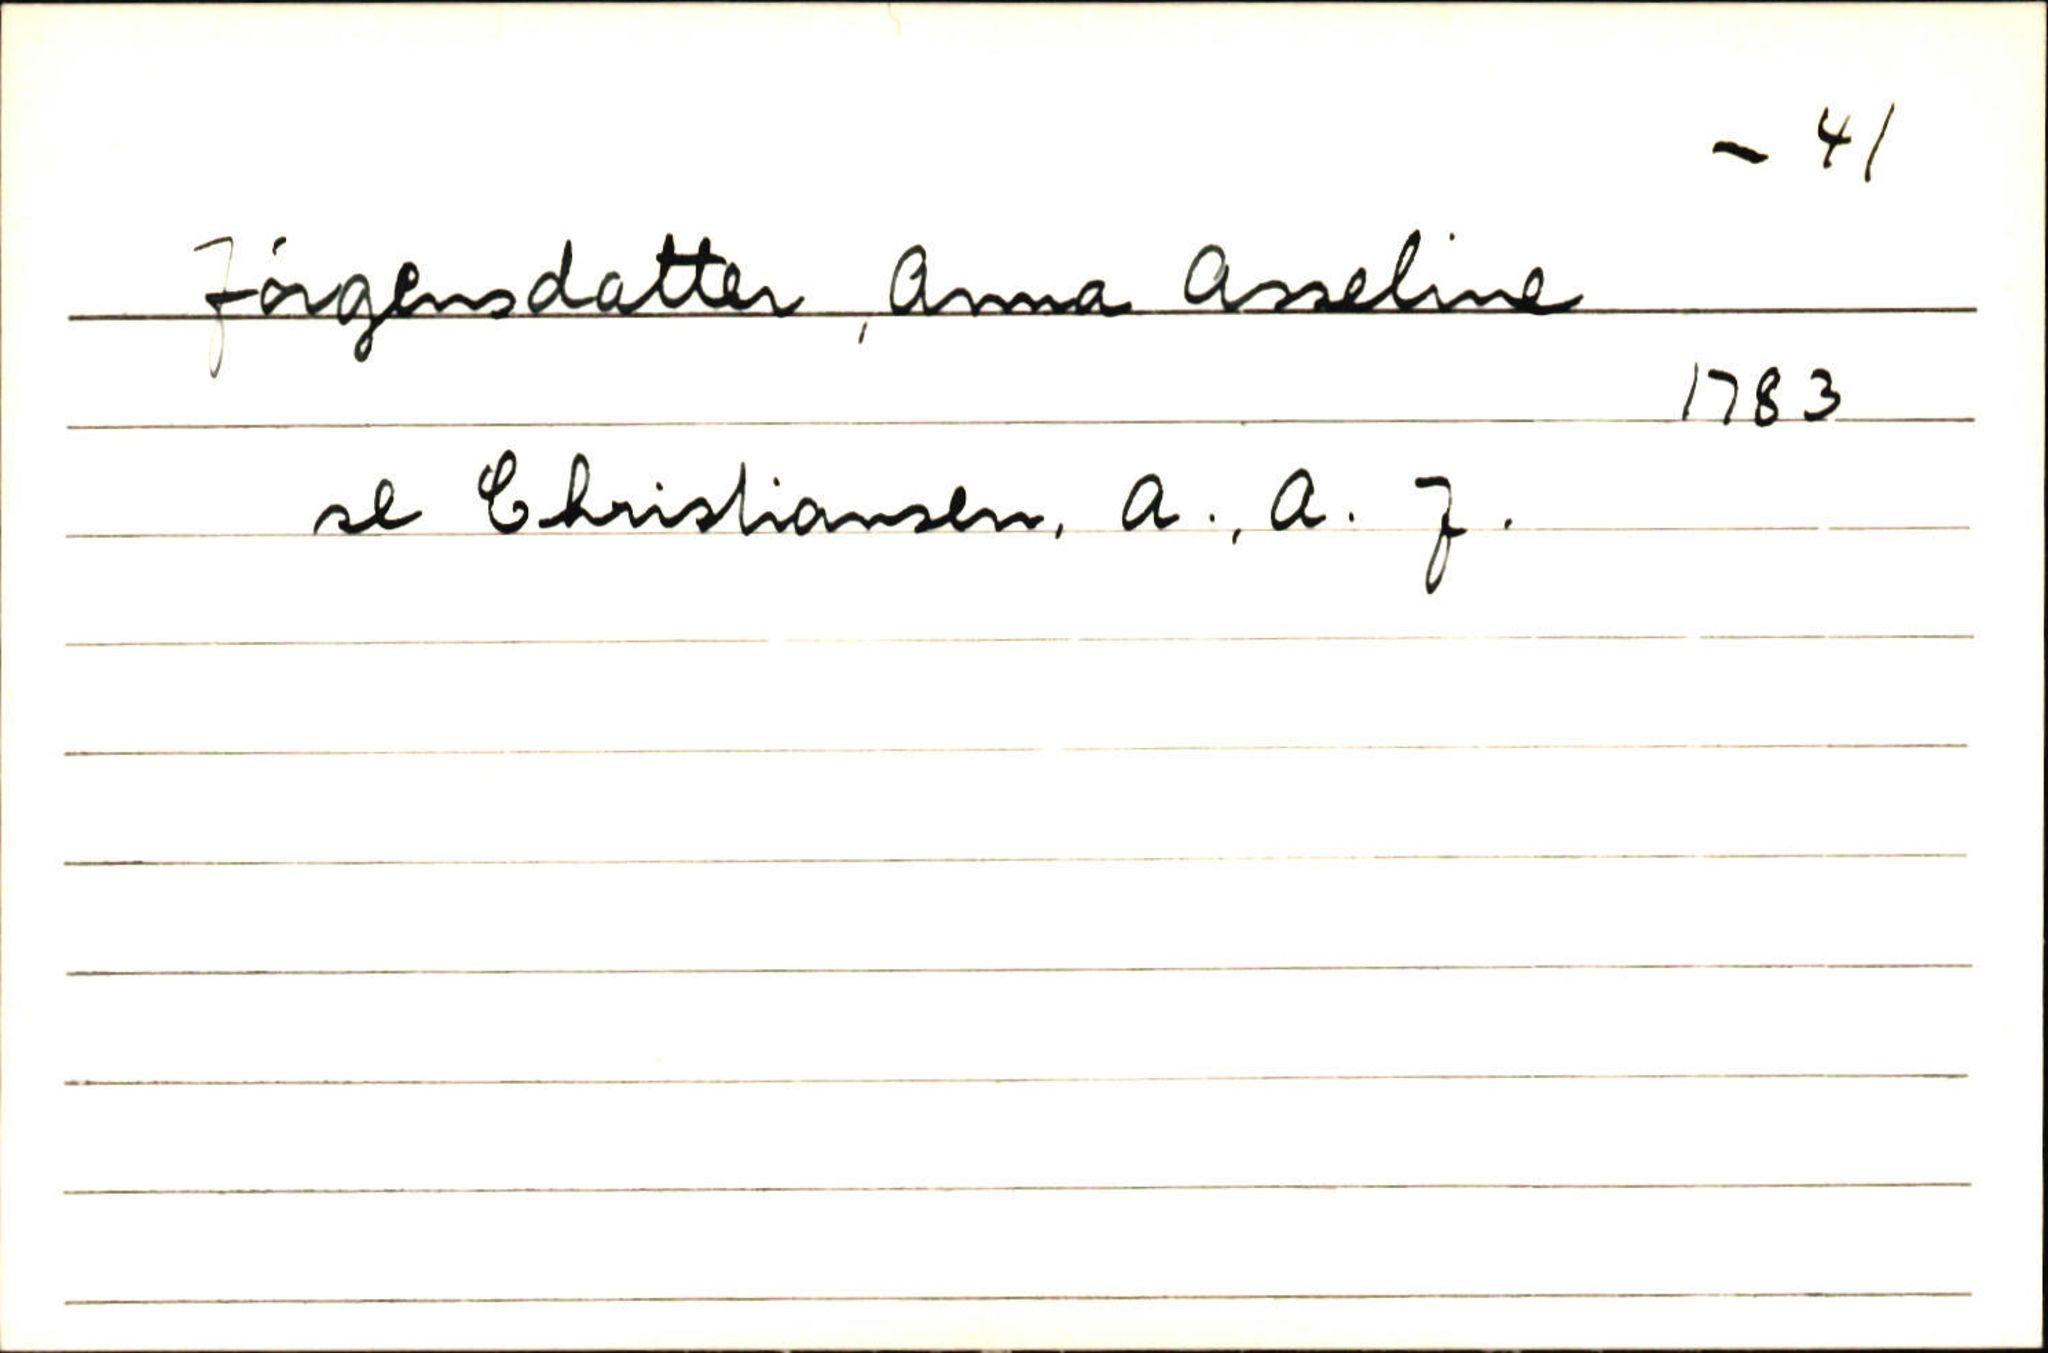 - 41
Jórgensdatter, Anna Asseline
1783
se Christiansen, A., A. J.